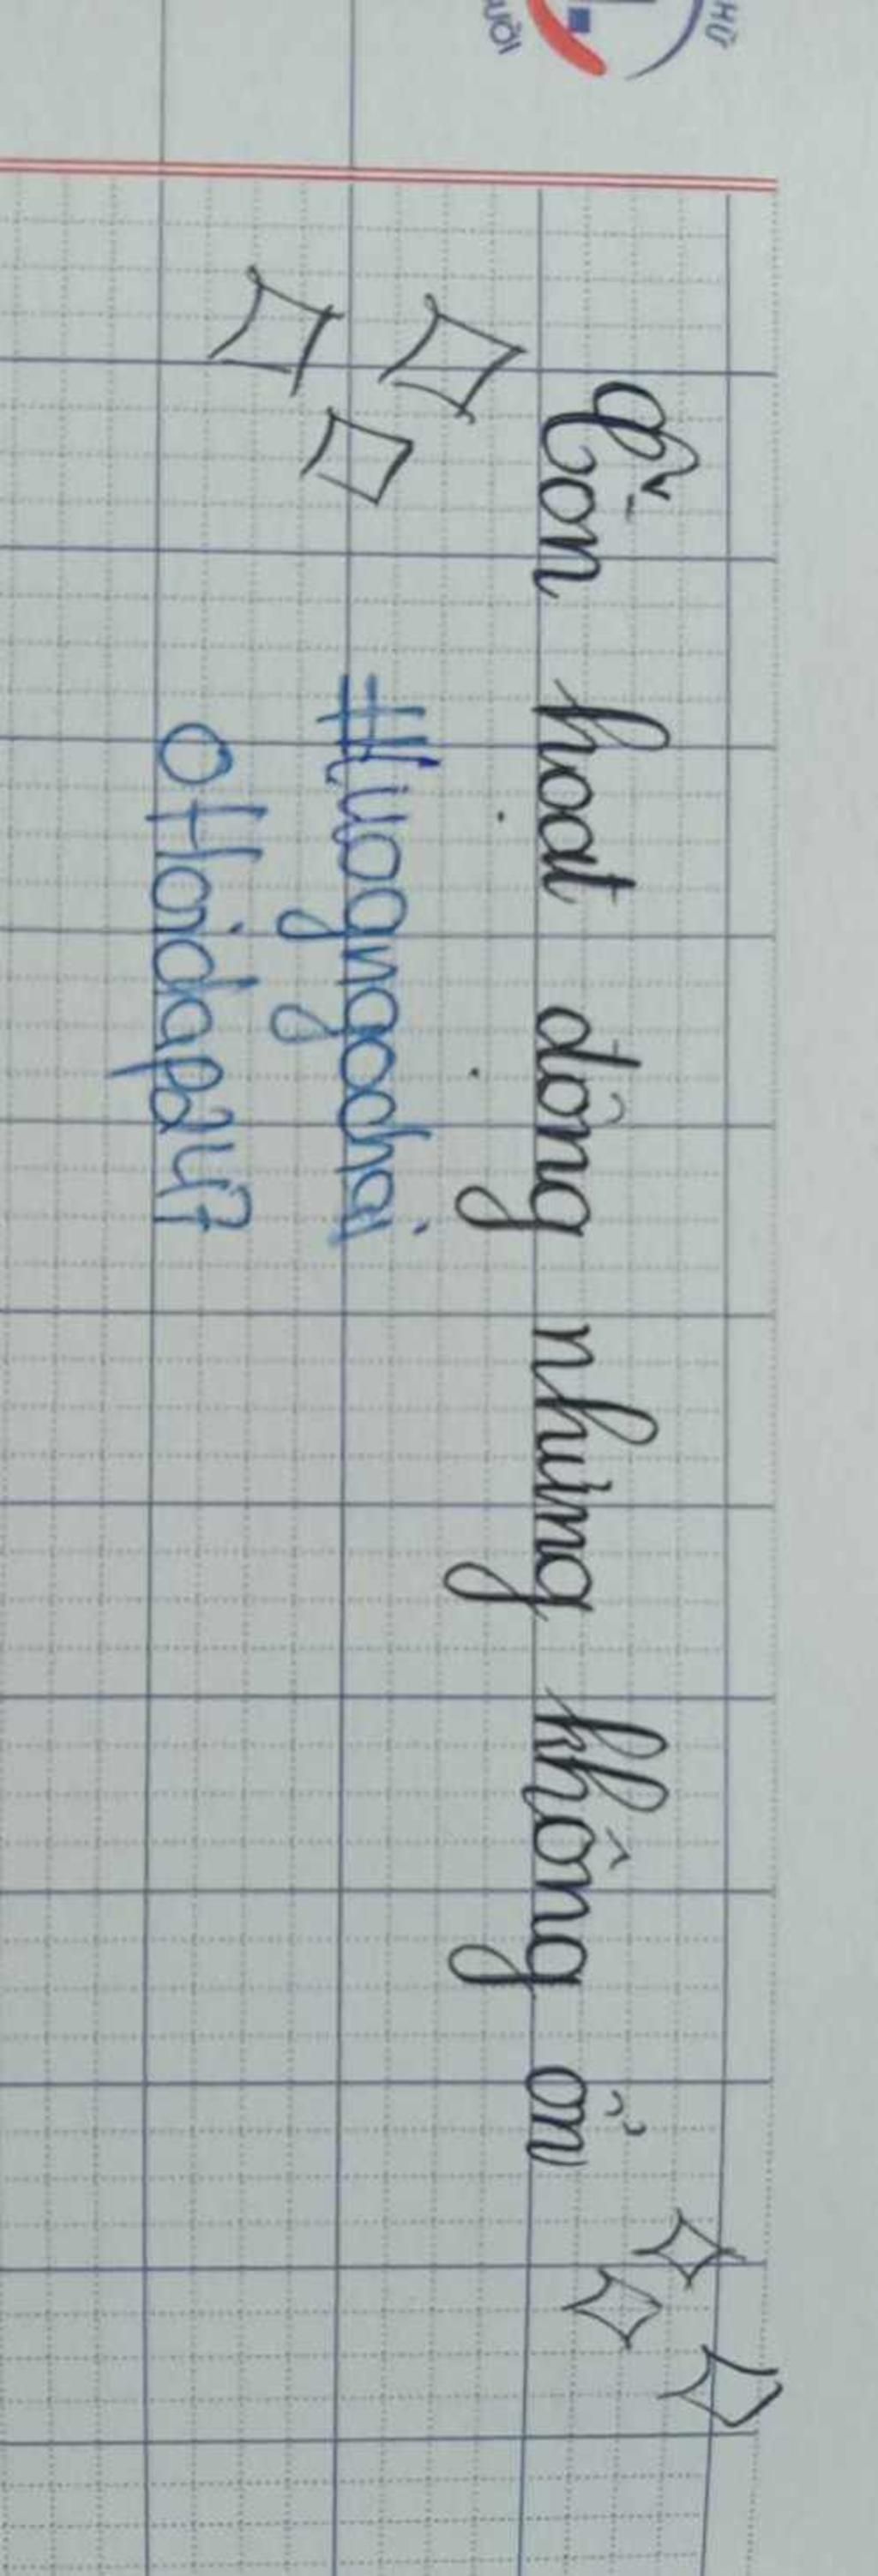 Còn hoạt động nhưng không ổn
#Huogngochai
OHoidap247